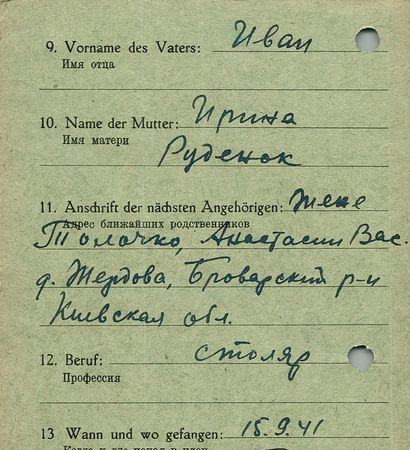 9. Vorname des Vaters: Иван
Имя отца
10. Name der Mutter: Ирина
Имя матери
Руденок
11. Anschrift der nächsten Angehörigen: жене
Адрес ближайших родственников
Толочко, Анастасии Вас.
д. Жердова, Броварский р-н
Киевская обл.
12. Beruf: столяр
Профессия
13 Wann und wo gefangen: 15.9.41
Когда и где попал в плен